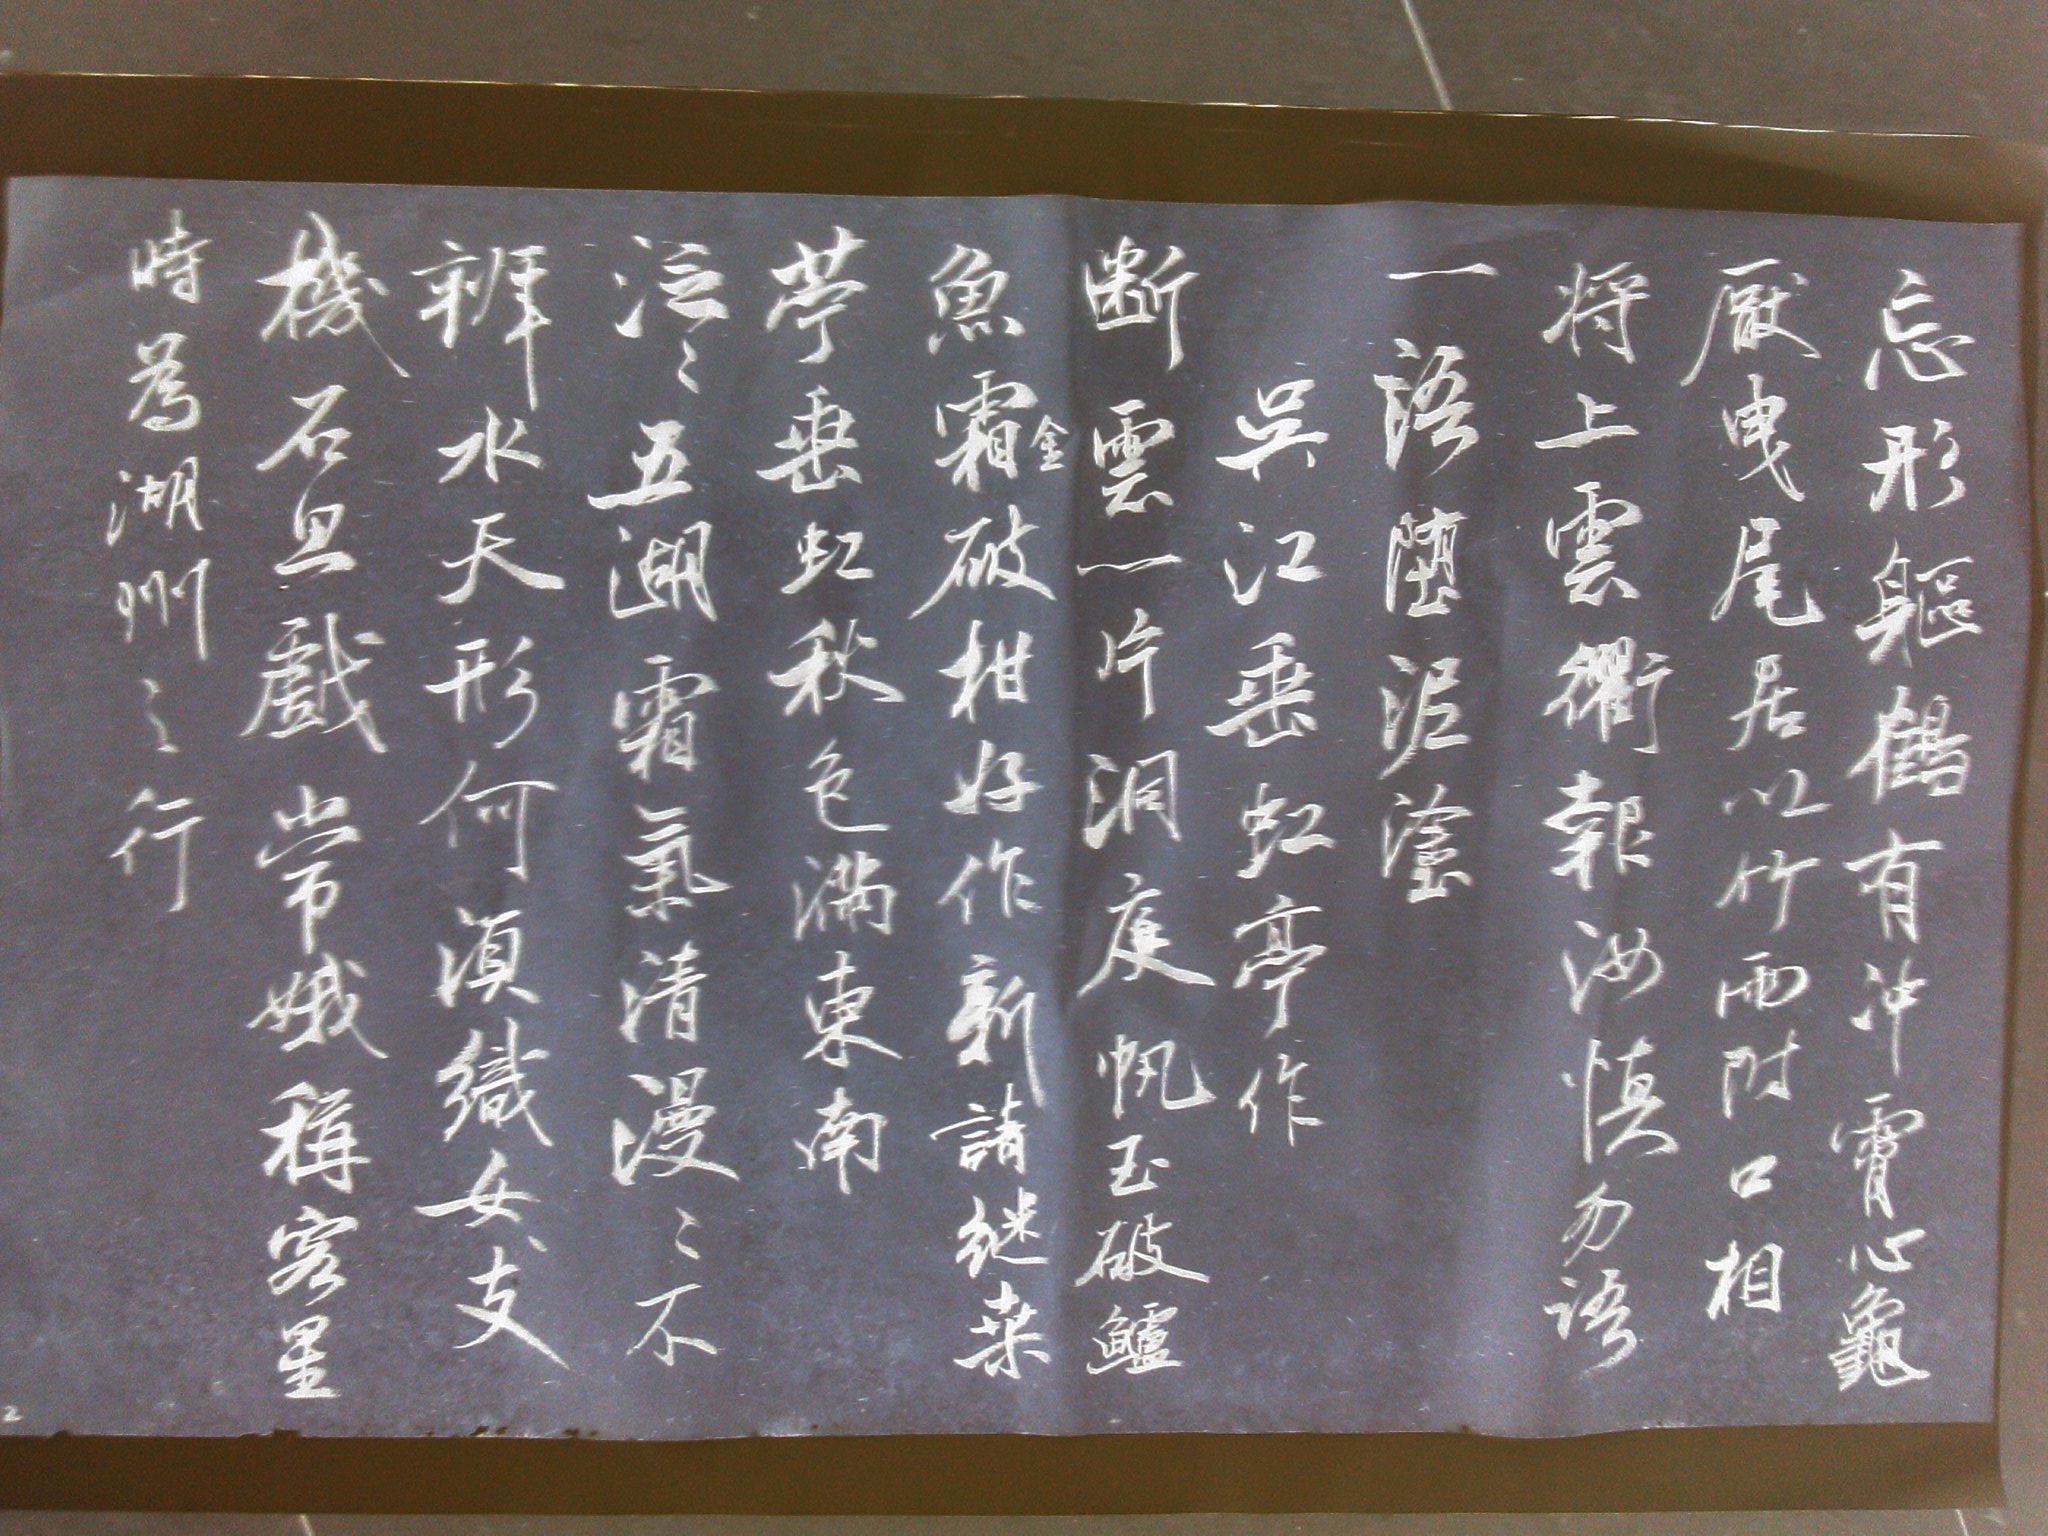 忘形軀鶴有冲霄心龜
厭曳尾居以竹兩附口相
将上雲衢報汝慎勿語
一語堕泥塗
吳江垂虹亭作
断雲一片洞庭帆玉破鱸
魚霜金破柑好作新詩継桑
苧垂虹秋色満東南
泛〻五湖霜氣清漫〻不
辨水天形何須織女支
機石且戲常娥稱客星
時為湖州之行
2